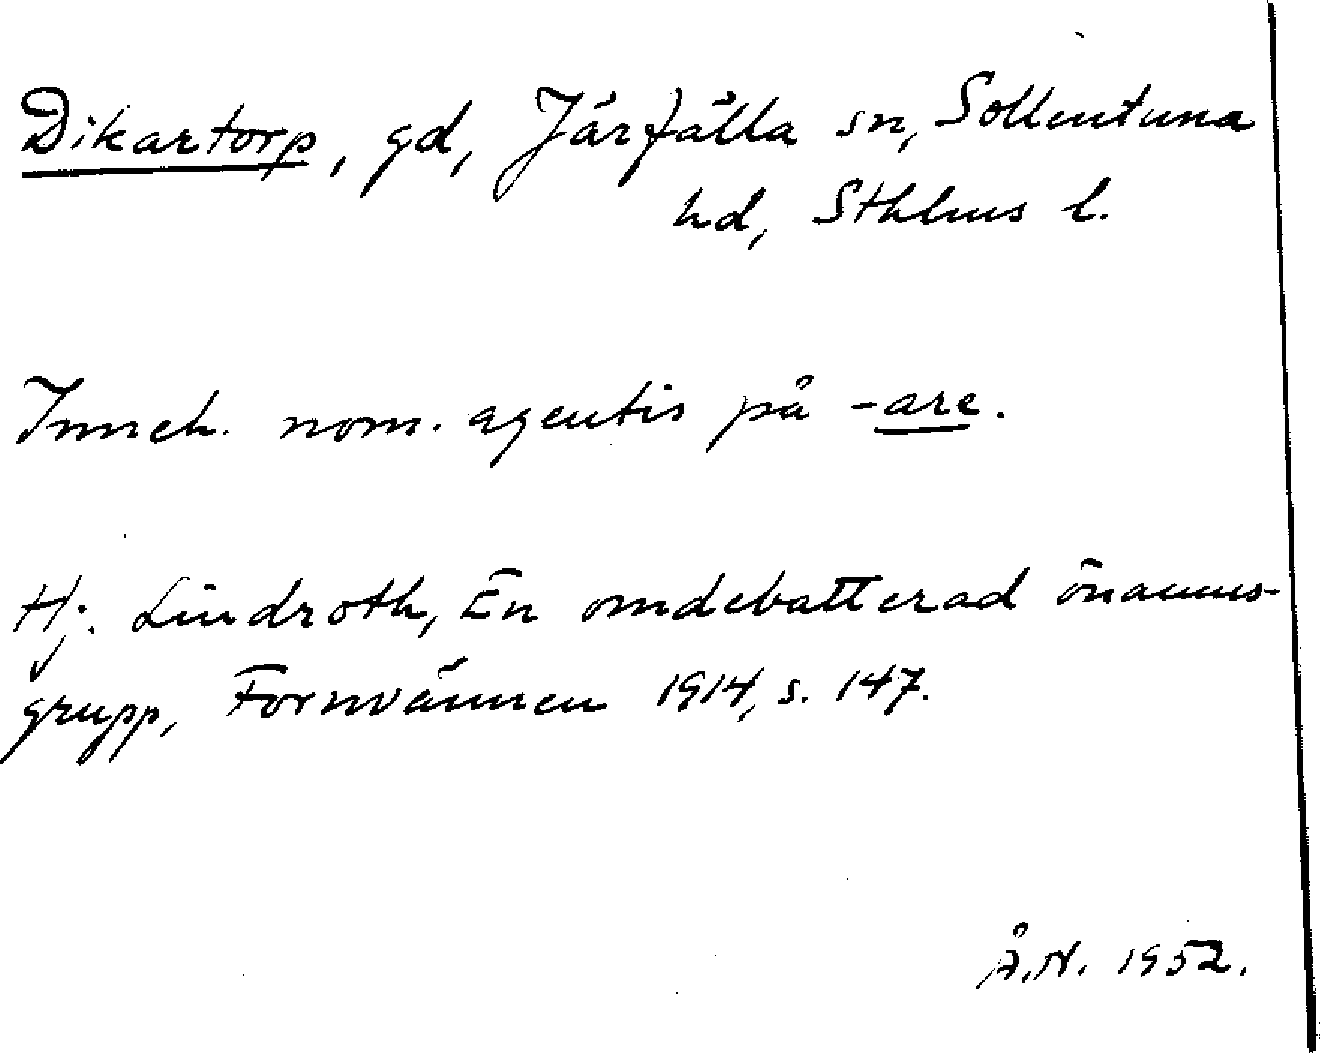 Dikartorp, gd, Järfälla sn, Sollentuna
hd, Sthlms l.
Inneh. nom. agentis på -are.
Hj. Lindroth, En omdebatterad önamns-
grupp, Fornvännen 1914, s. 147.
Å.N. 1952.